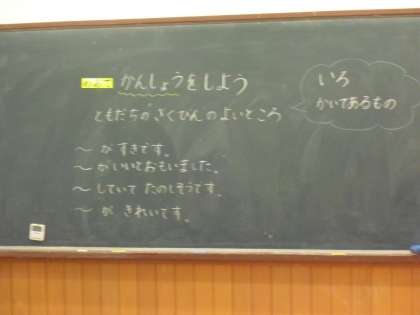 めあて かんしょうをしよう
ともだちの さくひんの よいところ
いろ
かいてあるもの
～が すきです。
～が いいとおもいました。
～していて たのしそうです。
～が きれいです。